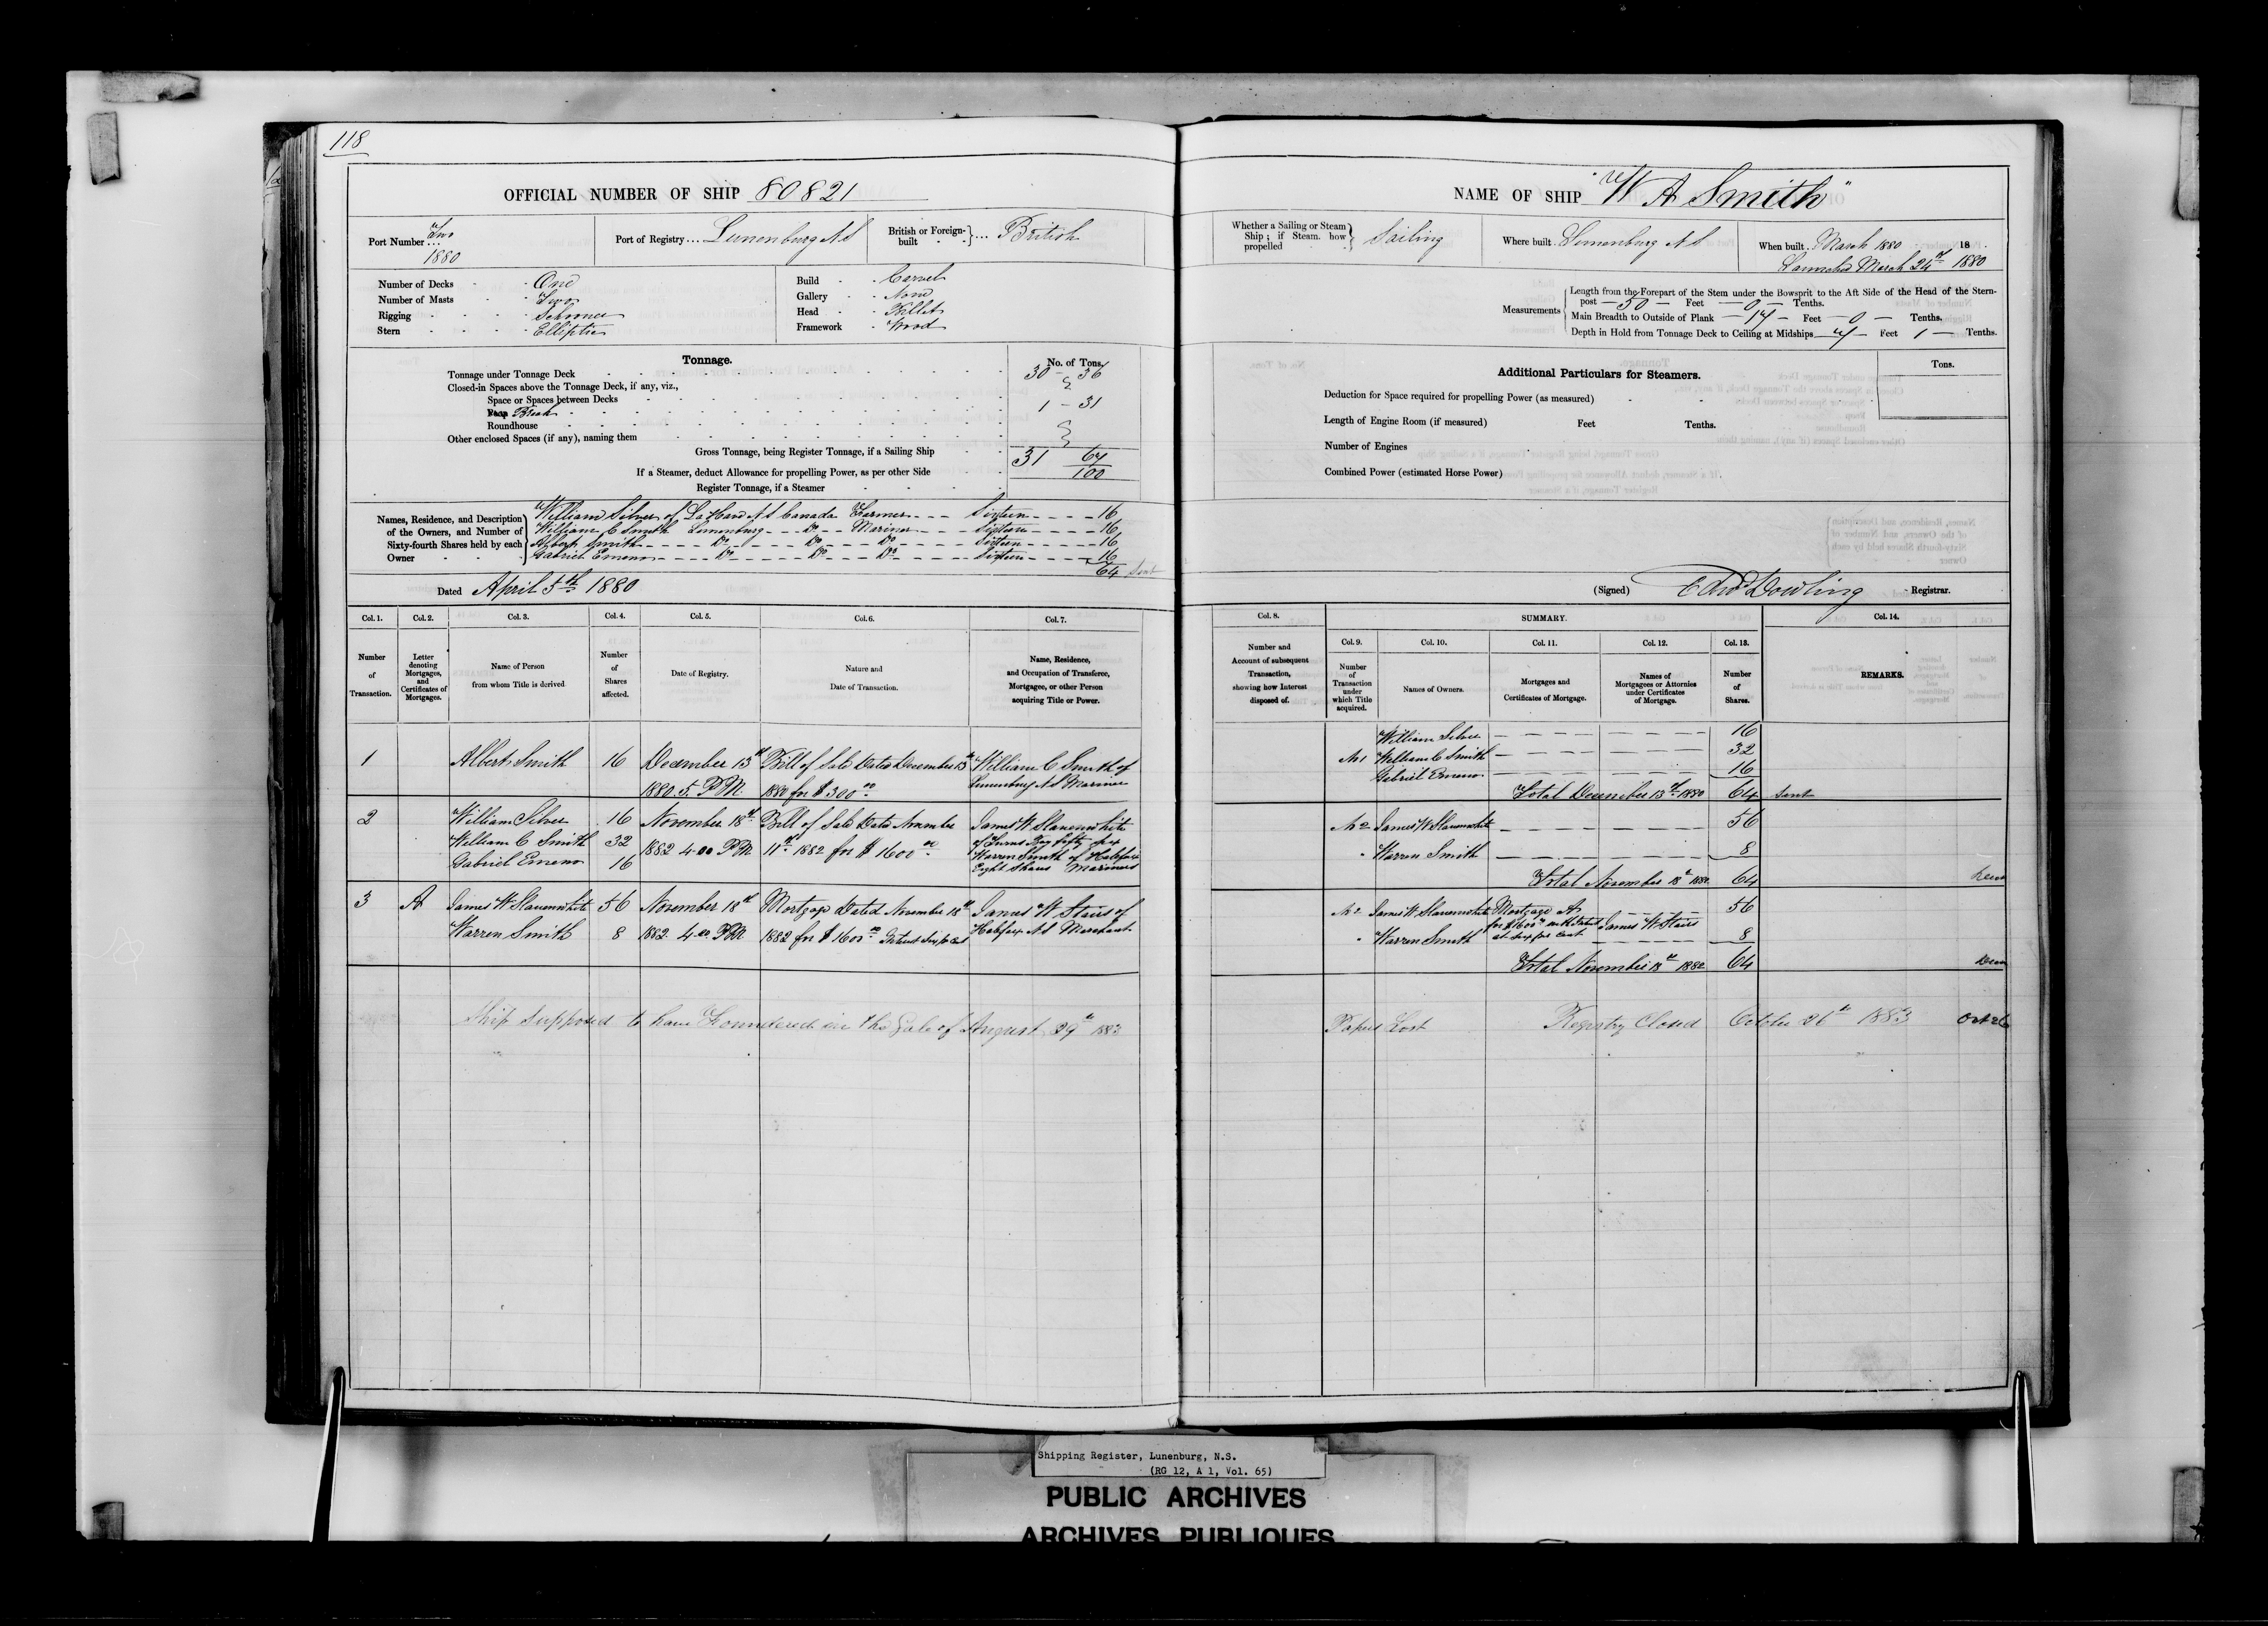 118
OFFICIAL NUMBER OF SHIP 80821
Port Number ... Two 1880
Port of Registry ... Lunenburg N S
British or Foreign-built ... British
Number of Decks One
Number of Masts Two
Rigging Schooner
Stern Elliptic
Build Carvel
Gallery None
Head Billet
Framework Wood
Tonnage.
No. of Tons.
Tonnage under Tonnage Deck 30 - 36
Closed-in Spaces above the Tonnage Deck, if any, viz.,
Space or Spaces between Decks
Poop Break 1 - 31
Roundhouse
Other enclosed Spaces (if any), naming them
Gross Tonnage, being Register Tonnage, if a Sailing Ship 31 67/100
If a Steamer, deduct Allowance for propelling Power, as per other Side
Register Tonnage, if a Steamer
Names, Residence, and Description of the Owners, and Number of Sixty-fourth Shares held by each Owner
William Silver of La Have N S Canada Farmer Sixteen 16
William C Smith Lunenburg Do Mariner Sixteen 16
Albert Smith Do Do Do Sixteen 16
Gabriel Emeno Do Do Do Sixteen 16
64 Sent
Dated April 5th 1880
Col. 1. Col. 2. Col. 3. Col. 4. Col. 5. Col. 6. Col. 7.
Number of Transaction.
Letter denoting Mortgages, and Certificates of Mortgages.
Name of Person from whom Title is derived
Number of Shares affected.
Date of Registry.
Nature and Date of Transaction.
Name, Residence, and Occupation of Transferee, Mortgagee, or other Person acquiring Title or Power.
1 Albert Smith 16 December 13th Bill of Sale Dated December 13th William C Smith of
1880. 5. P.M. 1880 for $300 00 Lunenburg N S Mariner
2 William Silver 16 November 18th Bill of Sale Dated November James W Slauenwhite
William C Smith 32 1882 4.00 P.M. 11th 1882 for $1600 00 of Turns Bay fifty six
Gabriel Emeno 16 Warren Smith of Halifax
Eight Shares Mariners
3 A James W Slauenwhite 56 November 18th Mortgage Dated November 18th James W Stairs of
Warren Smith 8 1882. 4.00 P.M. 1882 for $1600 00 Interest Six p cent Halifax N S Merchant
Ship supposed to have Foundered in the Gale of August 29th 1883
NAME OF SHIP "W A Smith"
Whether a Sailing or Steam Ship; if Steam, how propelled Sailing
Where built Lunenburg N S
When built March 1880 18
Launched March 24th 1880
Measurements
Length from the Forepart of the Stem under the Bowsprit to the Aft Side of the Head of the Stern-
post 50 Feet 0 Tenths.
Main Breadth to Outside of Plank 17 Feet 0 Tenths.
Depth in Hold from Tonnage Deck to Ceiling at Midships 7 Feet 1 Tenths.
Additional Particulars for Steamers.
Tons.
Deduction for Space required for propelling Power (as measured)
Length of Engine Room (if measured) Feet Tenths.
Number of Engines
Combined Power (estimated Horse Power)
(Signed) Edwd Dowling Registrar.
Col. 8. SUMMARY. Col. 14.
Col. 9. Col. 10. Col. 11. Col. 12. Col. 13.
Number and Account of subsequent Transaction, showing how Interest disposed of.
Number of Transaction under which Title acquired.
Names of Owners.
Mortgages and Certificates of Mortgage.
Names of Mortgagees or Attornies under Certificates of Mortgage.
Number of Shares.
REMARKS.
William Silver 16
No 1 William C Smith 32
Gabriel Emeno 16
Total December 13th 1880 64 Sent
No 2 James W Slauenwhite 56
" Warren Smith 8
Total November 18th 1882 64
No 2 James W Slauenwhite Mortgage A 56
for $1600 00 with Interest James W Stairs
" Warren Smith at six per cent 8
Total November 18th 1882 64
Papers Lost Registry Closed October 26th 1883 Oct 26
Shipping Register, Lunenburg, N.S.
(RG 12, A 1, Vol. 65)
PUBLIC ARCHIVES
ARCHIVES PUBLIQUES